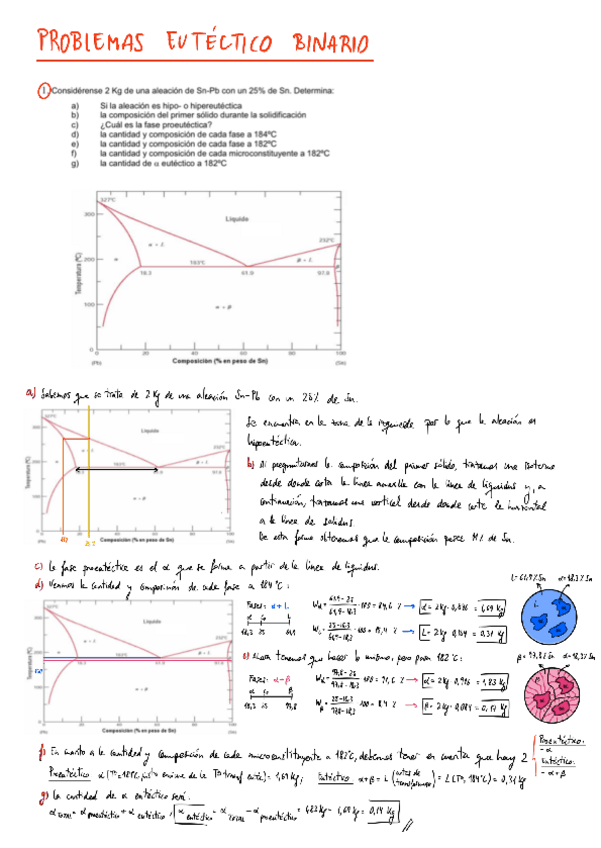 PROBLEMAS EUTÉCTICO BINARIO
1. Considérense 2 Kg de una aleación de Sn-Pb con un 25% de Sn. Determina:
a) Si la aleación es hipo- o hipereutéctica
b) la composición del primer sólido durante la solidificación
c) ¿Cuál es la fase proeutéctica?
d) la cantidad y composición de cada fase a 184ºC
e) la cantidad y composición de cada fase a 182ºC
f) la cantidad y composición de cada microconstituyente a 182ºC
g) la cantidad de α eutéctico a 182ºC
327ºC
300
Líquido
α + L
232ºC
200
183ºC
β + L
α
18.3
61.9
97.8
β
100
α + β
0
0 20 40 60 80 100
(Pb) Composición (% en peso de Sn) (Sn)
Temperatura (ºC)
a) Sabemos que se trata de 2 Kg de una aleación Sn-Pb con un 25% de Sn.
Se encuentra en la zona de la izquierda por lo que la aleación es
hipoeutéctica.
b) Si preguntamos la composición del primer sólido, trazamos una isoterma
desde donde corta la línea amarilla con la línea de líquidus y, a
continuación, trazamos una vertical desde donde corte la horizontal
a la línea de solidus.
De esta forma obtenemos que la composición posee 11% de Sn.
Líquido
Composición (% en peso de Sn)
c) La fase proeutéctica es el α que se forma a partir de la línea de liquidus.
d) Veamos la cantidad y composición de cada fase a 184ºC:
L= 61,9% Sn α= 18,3% Sn
Fases: α + L
α C₀ L
18,3 25 61,9
Wα = (61,9 - 25)/(61,9 - 18,3) · 100 = 84,6 % → α = 2 Kg · 0,846 = 1,69 Kg
W_L = (25 - 18,3)/(61,9 - 18,3) · 100 = 15,4 % → L = 2 Kg · 0,154 = 0,31 Kg
L
e) Ahora tenemos que hacer lo mismo, pero para 182ºC:
β= 97,8% Sn α= 18,3% Sn
Fases: α - β
α C₀ β
18,3 25 97,8
Wα = (97,8 - 25)/(97,8 - 18,3) · 100 = 91,6 % → α = 2 Kg · 0,916 = 1,83 Kg
Wβ = (25 - 18,3)/(97,8 - 18,3) · 100 = 8,4 % → β = 2 Kg · 0,084 = 0,17 Kg
Líquido
Composición (% en peso de Sn)
f) En cuanto a la cantidad y composición de cada microconstituyente a 182ºC, debemos tener en cuenta que hay 2
Proeutéctico:
- α
Eutéctico:
- α + β
Proeutéctico α = 1,69 Kg; Eutéctico α + β = L (antes de transformarse) = L (Tª, 184ºC) = 0,31 Kg
g) La cantidad de α eutéctico será:
α total = α proeutéctico + α eutéctico; α eutéctico = α total - α proeutéctico = 1,83 Kg - 1,69 Kg = 0,14 Kg